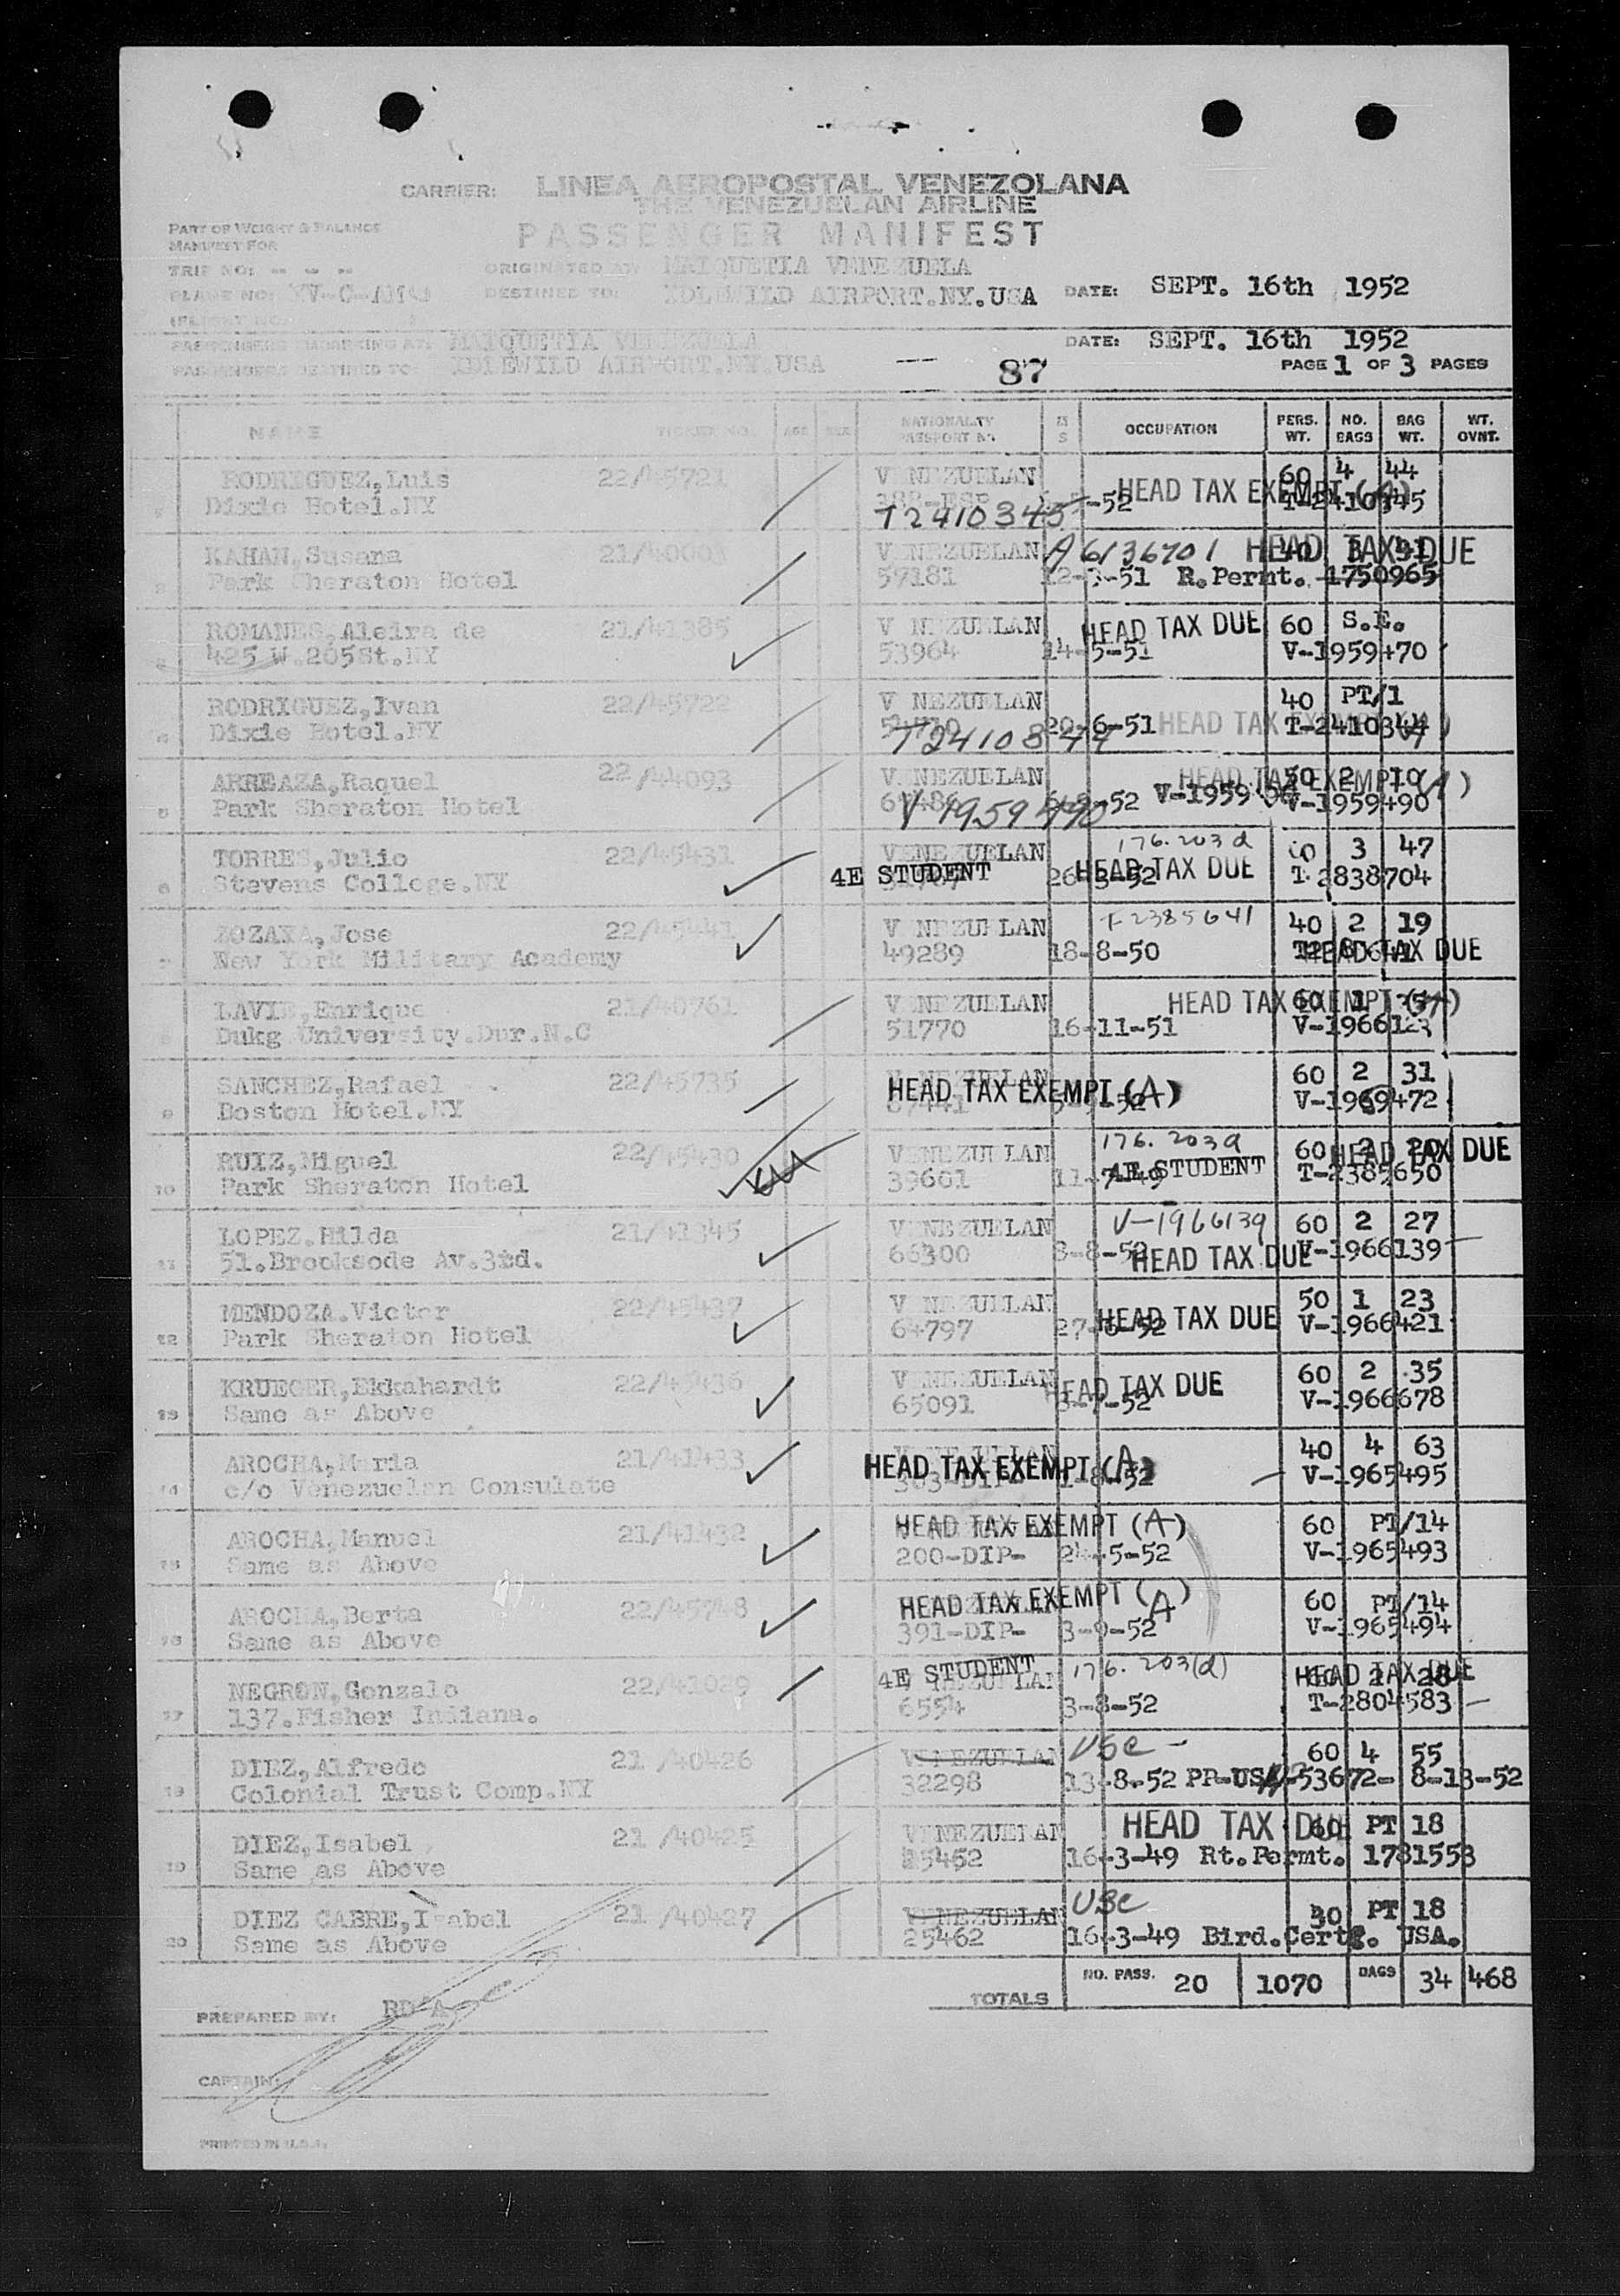 CARRIER: LINEA AEROPOSTAL VENEZOLANA
THE VENEZUELAN AIRLINE
PART OF WEIGHT & BALANCE
MANIFEST FOR
PASSENGER MANIFEST
TRIP NO: - - -
ORIGINATED AT: MAIQUETIA VENEZUELA
PLANE NO: YV-C-
DESTINED TO: IDLEWILD AIRPORT.NY.USA DATE: SEPT. 16th 1952
PASSENGERS EMBARKING AT: MAIQUETIA VENEZUELA DATE: SEPT. 16th 1952
PASSENGERS DESTINED TO: IDLEWILD AIRPORT.NY.USA
87 PAGE 1 OF 3 PAGES
NAME TICKET NO. AGE SEX NATIONALITY PASSPORT NO. M S OCCUPATION PERS. WT. NO. BAGS BAG WT. WT. OVNT.
RODRIGUEZ,Luis 22/45721 VENEZUELAN HEAD TAX EXEMPT (A) 60 4 44
Dixie Hotel.NY T2410345 -52 T-2410345
KAHAN,Susana VENEZUELAN A6136701 HEAD TAX DUE
2 Park Sheraton Hotel 59181 -51 R.Permt. 1750965
ROMANES,Aleira de 21/41385 V NEZUELAN HEAD TAX DUE 60 S.E.
425 W.205St.NY 53964 14-5-51 V-1959470
RODRIGUEZ,Ivan 22/45722 V NEZUELAN 40 PT/1
Dixie Hotel.NY 20-6-51 HEAD TAX EXEMPT T-2410344
ARREAZA,Raquel 22/44093 V NEZUELAN HEAD TAX EXEMPT (A) 50 2 10
5 Park Sheraton Hotel V 1959490 -52 V-1959490
TORRES,Julio 22/45431 VENEZUELAN 176.203a 3 47
6 Stevens College.NY 4E STUDENT HEAD TAX DUE T-2838704
ZOZAYA,Jose 22/45441 V NEZUELAN T2385641 40 2 19
New York Military Academy 49289 18-8-50 HEAD TAX DUE
LAVIE,Enrique 21/40761 V NEZUELAN HEAD TAX EXEMPT 60 1
Dukg University.Dur.N.C 51770 16-11-51 V-1966123
SANCHEZ,Rafael 22/45735 HEAD TAX EXEMPT (A) 60 2 31
9 Boston Hotel.NY V-1959472
RUIZ,Miguel 22/45430 VENEZUELAN 176.203a 60 2 20 HEAD TAX DUE
10 Park Sheraton Hotel 39661 11-7-49 4E STUDENT T-2385650
LOPEZ.Hilda 21/41345 VENEZUELAN V-1966139 60 2 27
11 51.Brooksode Av.3td. 66300 8-8-52 HEAD TAX DUE V-1966139
MENDOZA.Victor 22/45437 V NEZUELAN HEAD TAX DUE 50 1 23
12 Park Sheraton Hotel 64797 27-6-52 V-1966421
KRUEGER,Ekkahardt 22/45436 VENEZUELAN HEAD TAX DUE 60 2 35
13 Same as Above 65091 8-7-52 V-1966678
AROCHA,Maria 21/41433 HEAD TAX EXEMPT (A) 40 4 63
14 c/o Venezuelan Consulate -8-52 V-1965495
AROCHA,Manuel 21/41432 HEAD TAX EXEMPT (A) 60 PT/14
15 Same as Above 200-DIP- 24-5-52 V-1965493
AROCHA,Berta 22/45748 HEAD TAX EXEMPT (A) 60 PT/14
16 Same as Above 391-DIP- 3-9-52 V-1965494
NEGRON,Gonzalo 22/41029 4E STUDENT 176.203(a) HEAD TAX DUE
17 137.Fisher Indiana. 6554 3-8-52 T-2804583
DIEZ,Alfredo 21/40426 VENEZUELAN USC 60 4 55
Colonial Trust Comp.NY 32298 13-8-52 PP-USA-53672- 8-13-52
DIEZ,Isabel 21/40425 VENEZUELAN HEAD TAX DUE 60 PT 18
19 Same as Above 25462 16-3-49 Rt.Permt. 1781553
DIEZ CABRE,Isabel 21/40427 VENEZUELAN USC 30 PT 18
20 Same as Above 25462 16-3-49 Bird.Certf. USA.
TOTALS NO. PASS. 20 1070 BAGS 34 468
PREPARED BY:
CAPTAIN:
PRINTED IN U.S.A.